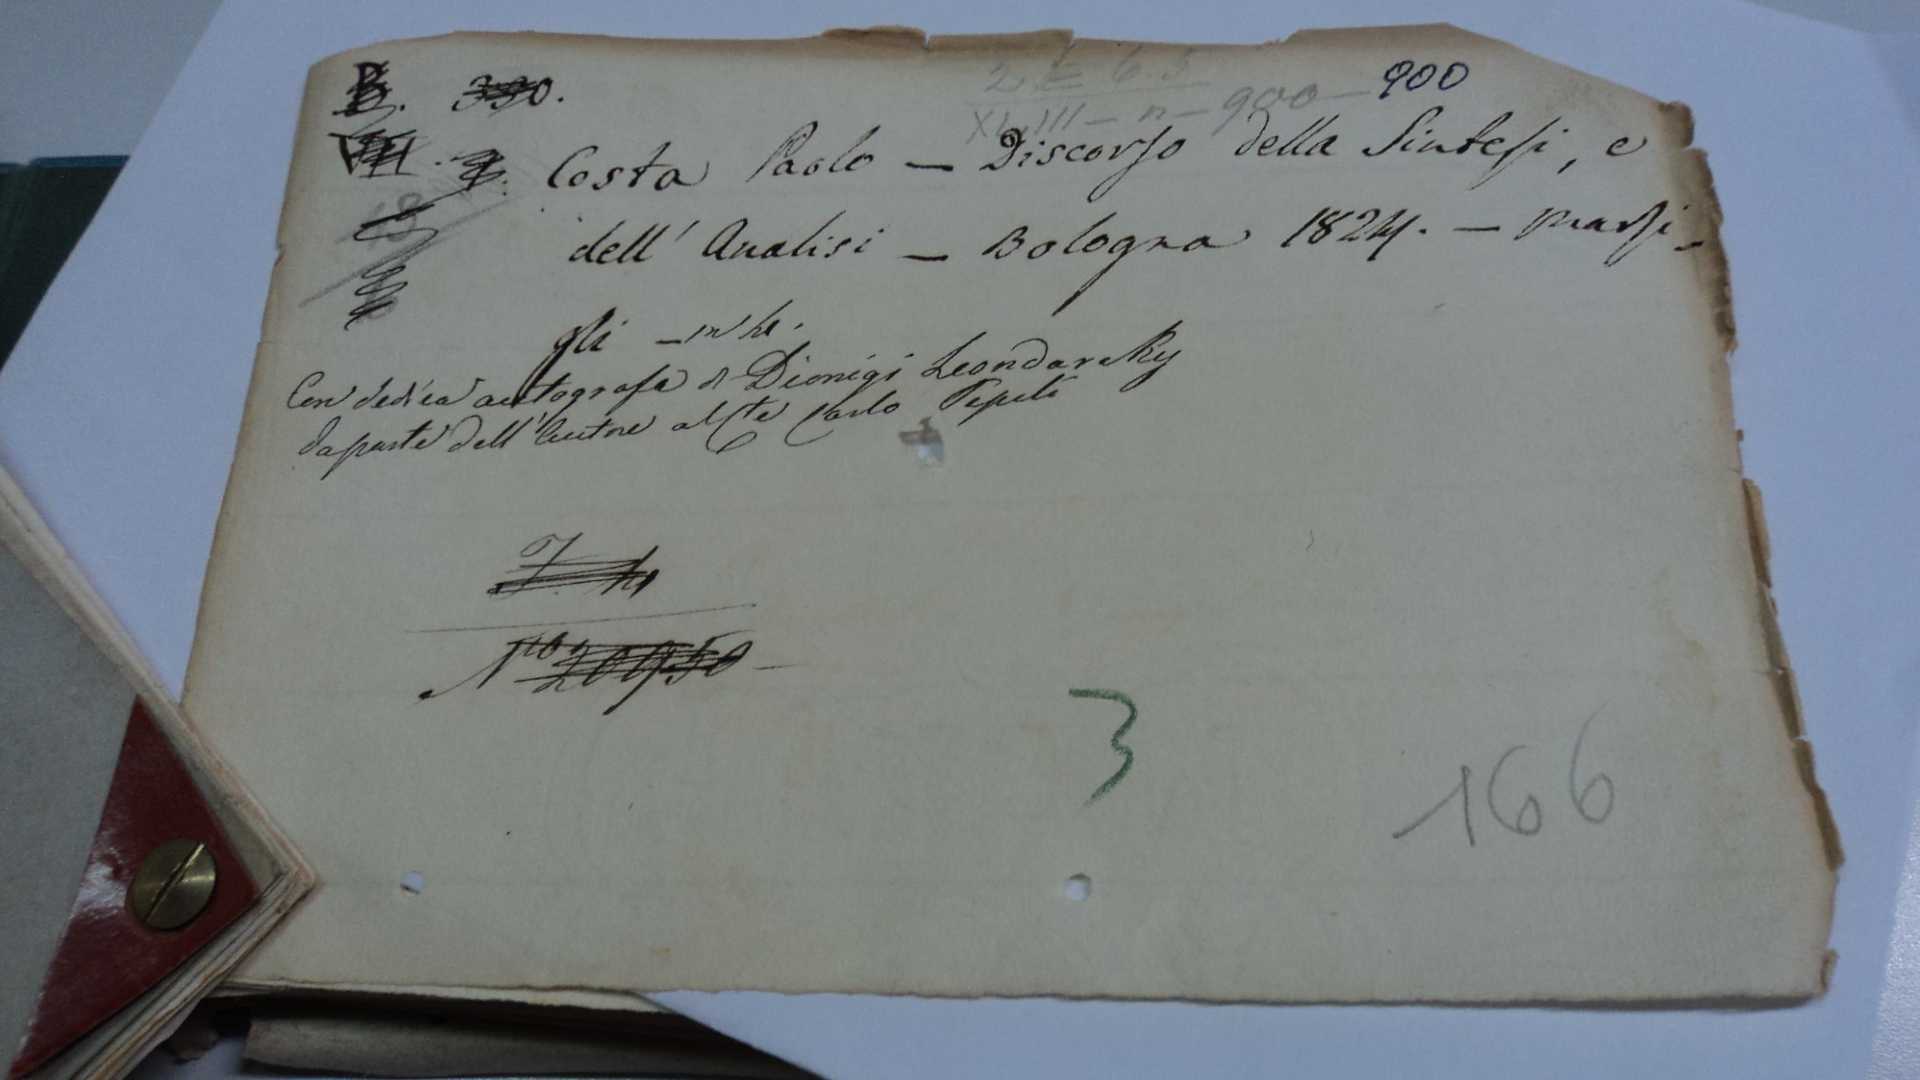 B. 330.
2. E 6.5
XLIII - n - 900 - 900
VIII. 7. Costa Paolo — Discorso della Sintesi, e
dell' Analisi — Bologna 1824. — Marsi-
gli — in
Con dedica autografa di Dionigi
da parte dell'Autore al Cte Carlo Pepoli
3
166